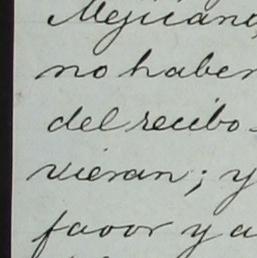 Mejicano
no haber
del recibo
vieran; y
favor y a